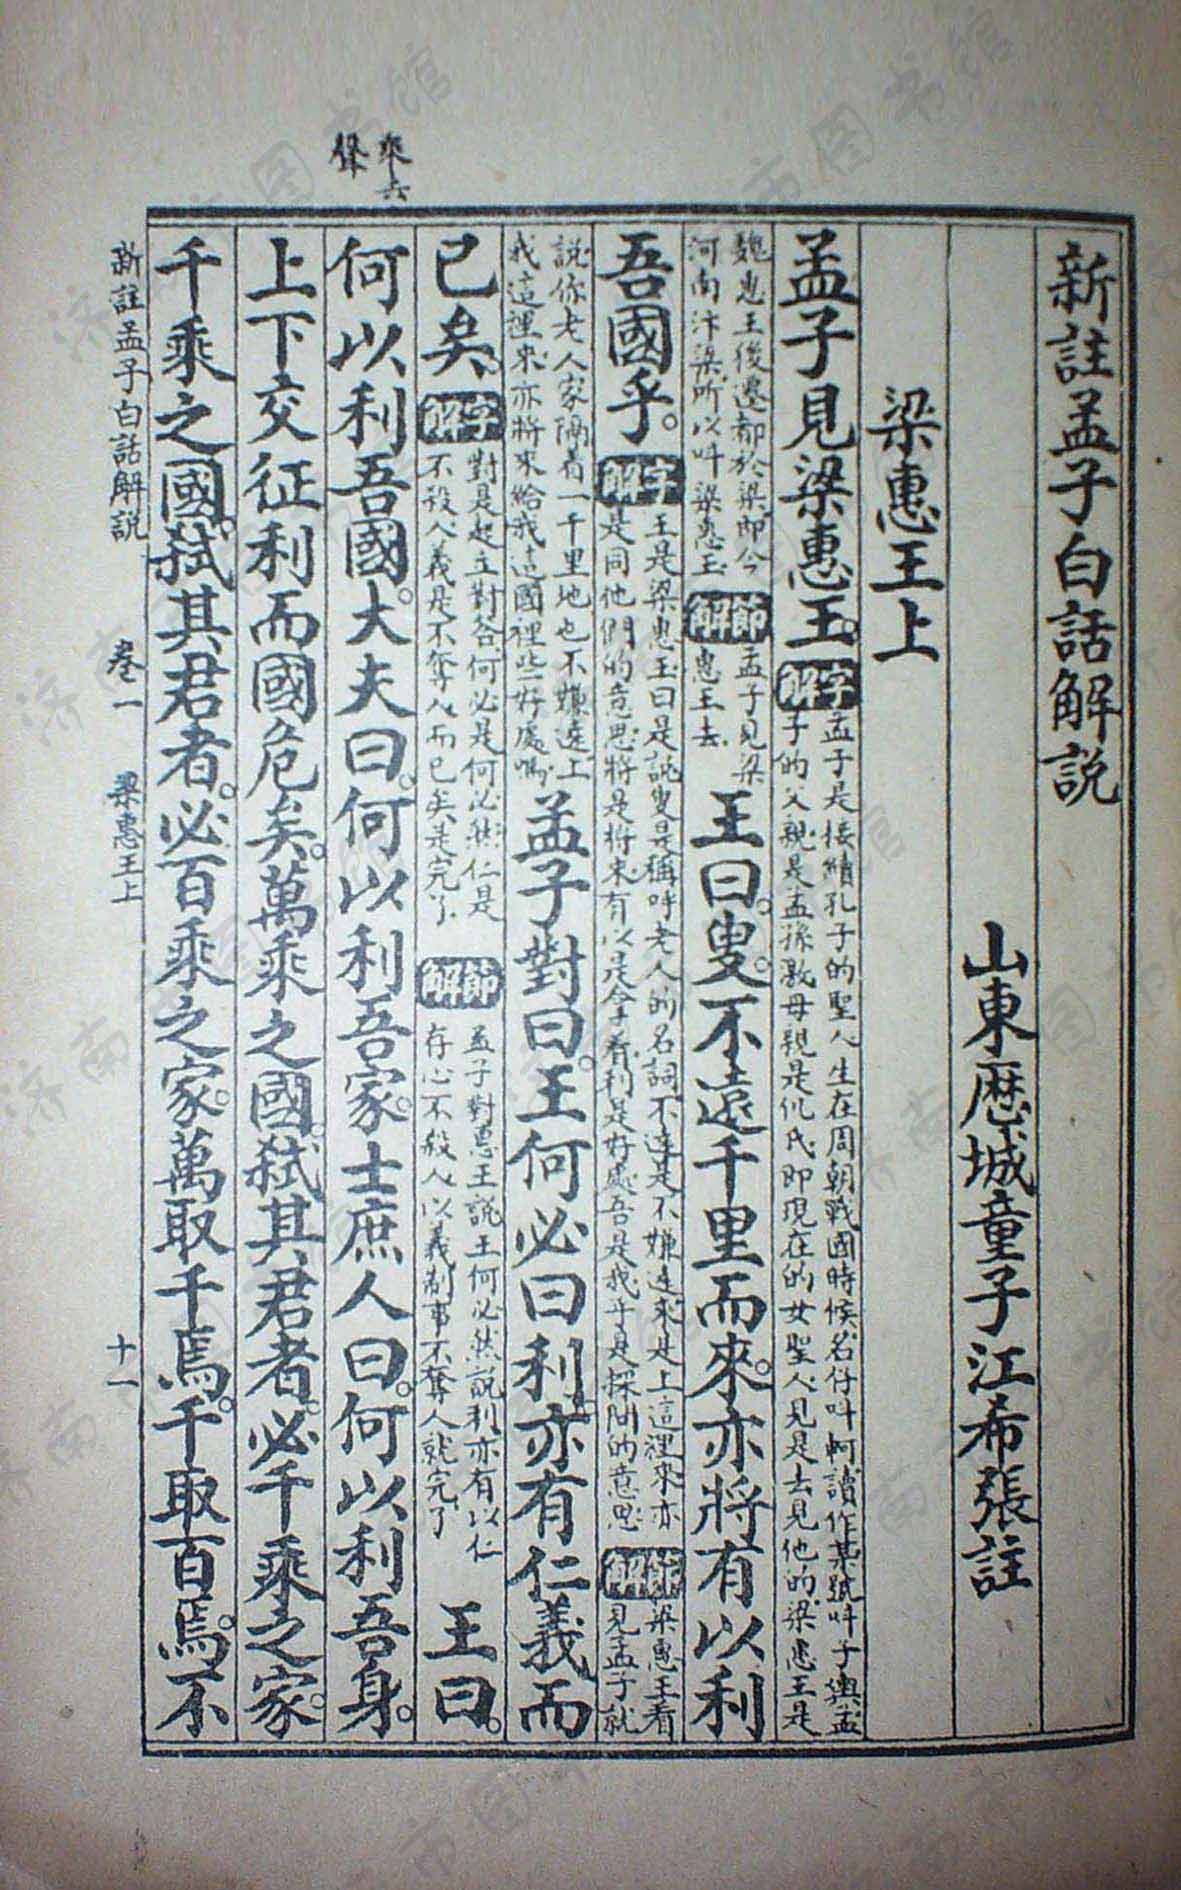 新註孟子白話解説
山東歷城童子江希張註
梁惠王上
孟子見梁惠王。字解 孟子是接續孔子的聖人生在周朝戰國時候名仔叫軻讀作某號叫子輿孟
子的父親是孟孫激母親是仉氏即現在的女聖人見是去見他的梁惠王是
魏惠王後遷都於梁即今
河南汴梁所以叫梁惠王 節解 孟子見梁
惠王去 王曰。叟。不遠千里而來。亦將有以利
吾國乎。字解 王是梁惠王曰是說叟是稱呼老人的名詞不遠是不嫌遠來是上這裡來亦
是同他們的意思將是將來有以是會有利是好處吾是我乎是探問的意思 節解 梁惠王看
見孟子就
說你老人家隔着一千里地也不嫌遠上
我這裡來亦將來給我這國裡些好處嗎 孟子對曰。王何必曰利。亦有仁義而
已矣。字解 對是起立對答何必是何必然仁是
不殺人義是不奪人而已矣是完了 節解 孟子對惠王說王何必然說利亦有以仁
存心不殺人以義制事不奪人就完了 王曰。
何以利吾國。大夫曰。何以利吾家。士庶人曰。何以利吾身。
上下交征利而國危矣。萬乘之國。弒其君者。必千乘之家。
千乘之國。弒其君者。必百乘之家。萬取千焉。千取百焉。不
乘去
聲
新註孟子白話解説 卷一 梁惠王上 十一
济南市图书馆